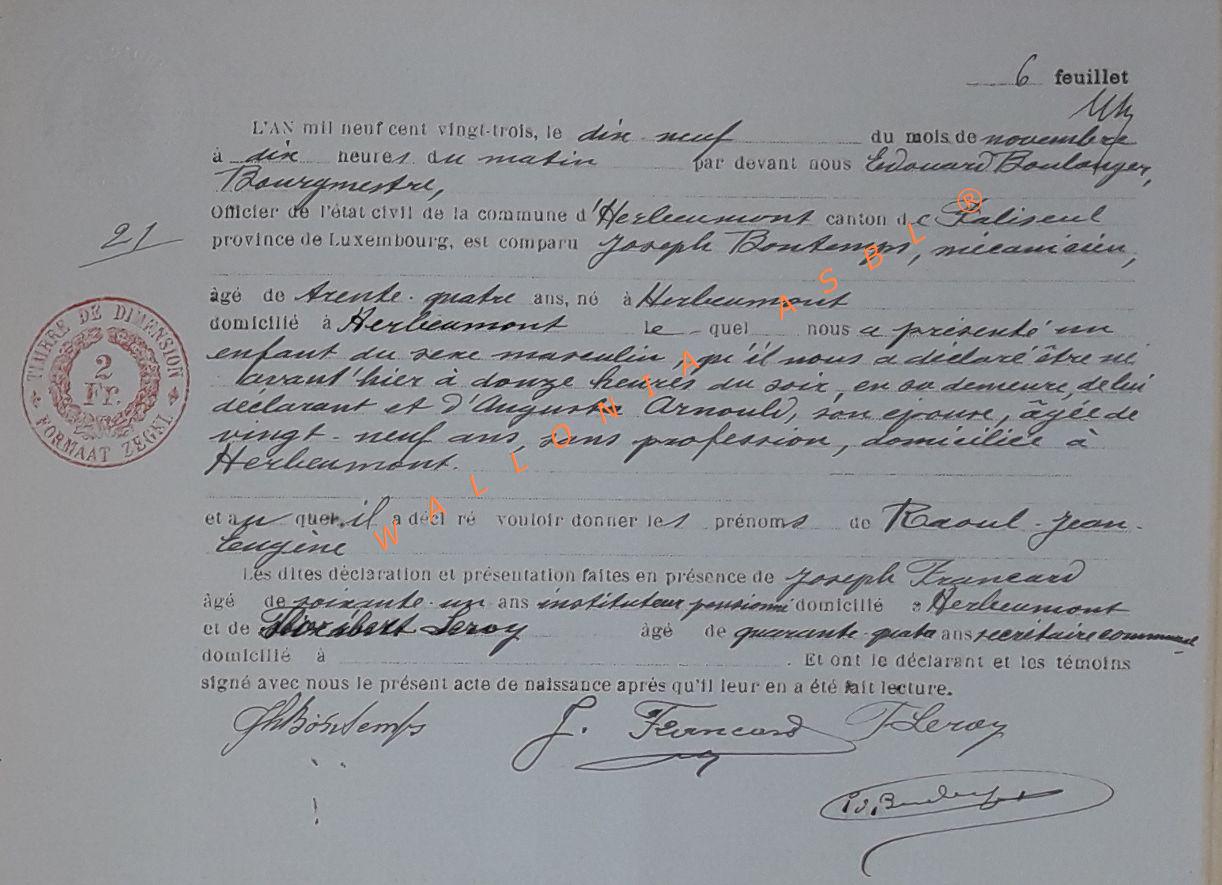 6 feuillet
L'AN mil neuf cent vingt-trois, le dix neuf du mois de novembre
à dix heures du matin par devant nous Edouard Boulanger,
Bourgmestre,
Officier de l'état civil de la commune d'Herbeumont canton de Paliseul
21
province de Luxembourg, est comparu Joseph Bontemps, mécanicien,
âgé de trente-quatre ans, né à Herbeumont
domicilié à Herbeumont le quel nous a présenté un
enfant du sexe masculin, qu'il nous a déclaré être né
avant'hier à douze heures du soir, en sa demeure, de lui
déclarant et d'Augusta Arnould, son épouse, âgée de
vingt-neuf ans, sans profession, domiciliée à
Herbeumont.
et au quel il a décl ré vouloir donner les prénoms de Raoul-Jean-
Eugène
Les dites déclaration et présentation faites en présence de Joseph Francard
âgé de soixante-un ans instituteur pensionné domicilié à Herbeumont
et de Leroy âgé de quarante-quatre ans secrétaire communal
domicilié à . Et ont le déclarant et les témoins
signé avec nous le présent acte de naissance après qu'il leur en a été fait lecture.
JhBontemps J. Francard Leroy
TIMBRE DE DIMENSION
2
Fr.
FORMAAT ZEGEL
WALLONIA ASBL ®